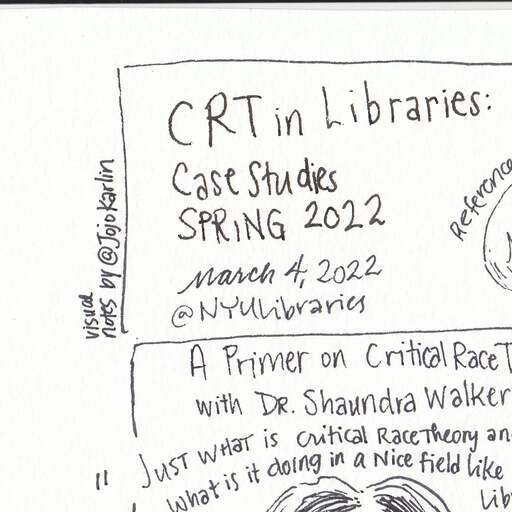 CRT in Libraries:
Case Studies
SPRING 2022
March 4, 2022
@NYULibraries
visual
notes by @JojoKarlin
Reference
A Primer on Critical Race T
with DR. Shaundra Walker
" JUST WHAT is critical Race Theory an
What is it doing in a Nice field like
Lib